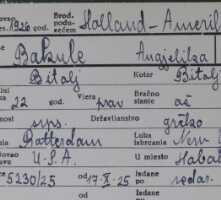 1926 god. Brod. podu- zećem Holland-Amerik
Bakule Angjelika
Bitolj Kotar Bitolj
22 god. Vjera prav Bračno stanje
nost srps. Državljanstvo grčko
Rotterdam Luka iskrcanja New
ovao U.S.A. U mjesto
5230/25 od 17.X.25 Izdane po redar.
Izdane